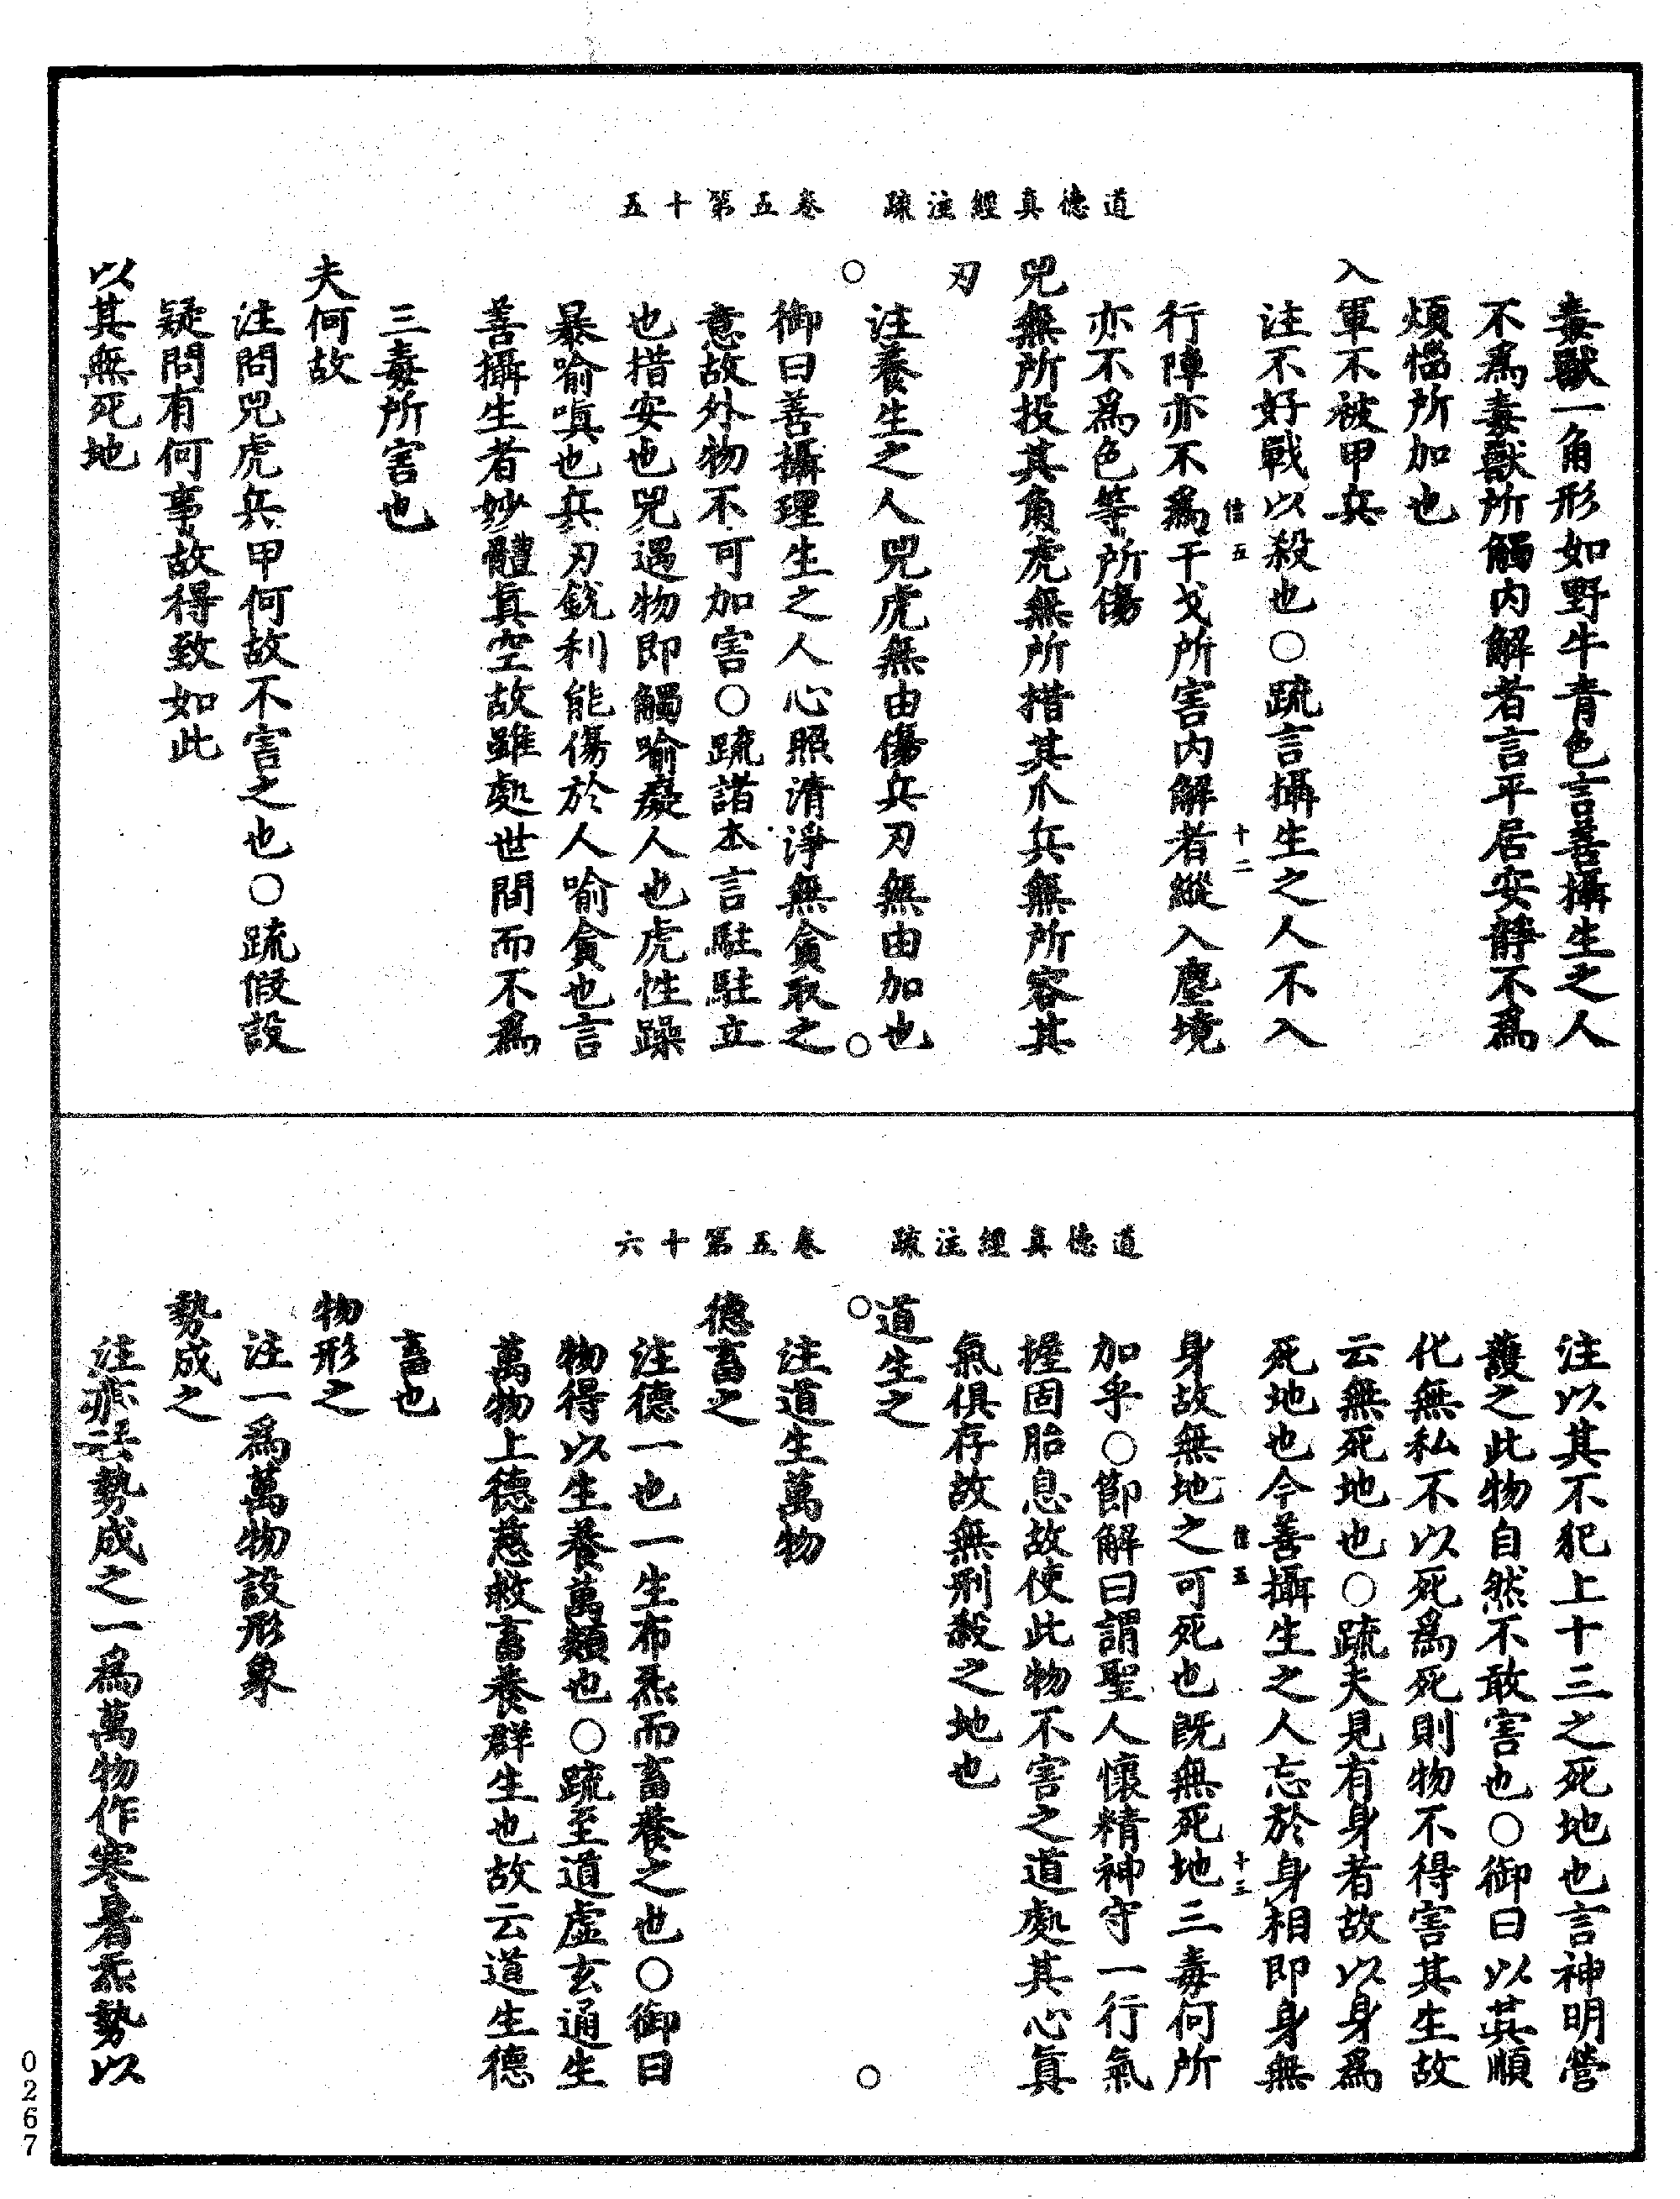 道德真經注疏　卷五第十五
毒獸一角形如野牛青色言善攝生之人
不爲毒獸所觸內解者言平居安靜不爲
煩惱所加也
入軍不被甲兵
注不好戰以殺也○疏言攝生之人不入
信五　十二
行陣亦不爲干戈所害內解者縱入塵境
亦不爲色等所傷
兕無所投其角虎無所措其爪兵無所容其
刃
注養生之人兕虎無由傷兵刃無由加也
御曰善攝理生之人心照清淨無貪取之
意故外物不可加害○疏諸本言駐駐立
也措安也兕遇物即觸喻癡人也虎性躁
暴喻嗔也兵刃銳利能傷於人喻貪也言
善攝生者妙體真空故雖處世間而不爲
三毒所害也
夫何故
注問兕虎兵甲何故不害之也○疏假設
疑問有何事故得致如此
以其無死地
道德真經注疏　卷五第十六
注以其不犯上十三之死地也言神明營
護之此物自然不敢害也○御曰以其順
化無私不以死爲死則物不得害其生故
云無死地也○疏夫見有身者故以身爲
死地也今善攝生之人忘於身相即身無
信五　十三
身故無地之可死也既無死地三毒何所
加乎○節解曰謂聖人懷精神守一行氣
握固胎息故使此物不害之道處其心真
氣俱存故無刑殺之地也
道生之
注道生萬物
德畜之
注德一也一生布炁而畜養之也○御曰
物得以生養萬類也○疏至道虛玄通生
萬物上德慈救畜養群生也故云道生德
畜也
物形之
注一爲萬物設形象
勢成之
注勢成之一爲萬物作寒暑炁勢以
0267